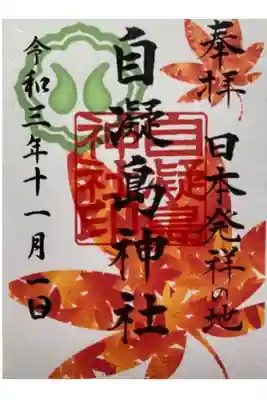 奉拝
日本発祥の地
自凝島神社
自凝島
神社印
令和三年十一月一日